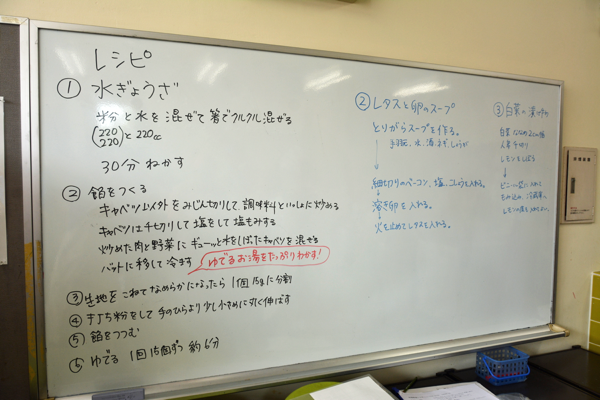 レシピ
① 水ぎょうざ
粉と水を混ぜて箸でクルクル混ぜる
(220 220)と220cc
30分ねかす
② 餡をつくる
キャベツ以外をみじん切りして、調味料といっしょに炒める
キャベツは千切りして塩をして塩もみする
炒めた肉と野菜にギューッと水をしぼったキャベツを混ぜる
バットに移して冷ます
ゆでるお湯をたっぷりわかす!
③ 生地をこねてなめらかになったら 1個15gに分割
④ 打ち粉をして手のひらより少し小さめに丸く伸ばす
⑤ 餡をつつむ
⑥ ゆでる 1回15個ずつ 約6分
② レタスと卵のスープ
とりがらスープを作る。
水、酒、ネギ、しょうが
細切りのベーコン、塩、こしょうを入れる。
溶き卵を入れる。
火を止めてレタスを入れる。
③ 白菜の漬け物
白菜 ななめ2cm幅
人参 千切り
レモンをしぼる
ビニール袋に入れて
もみ込み、冷蔵庫へ
レモンの皮も入れる